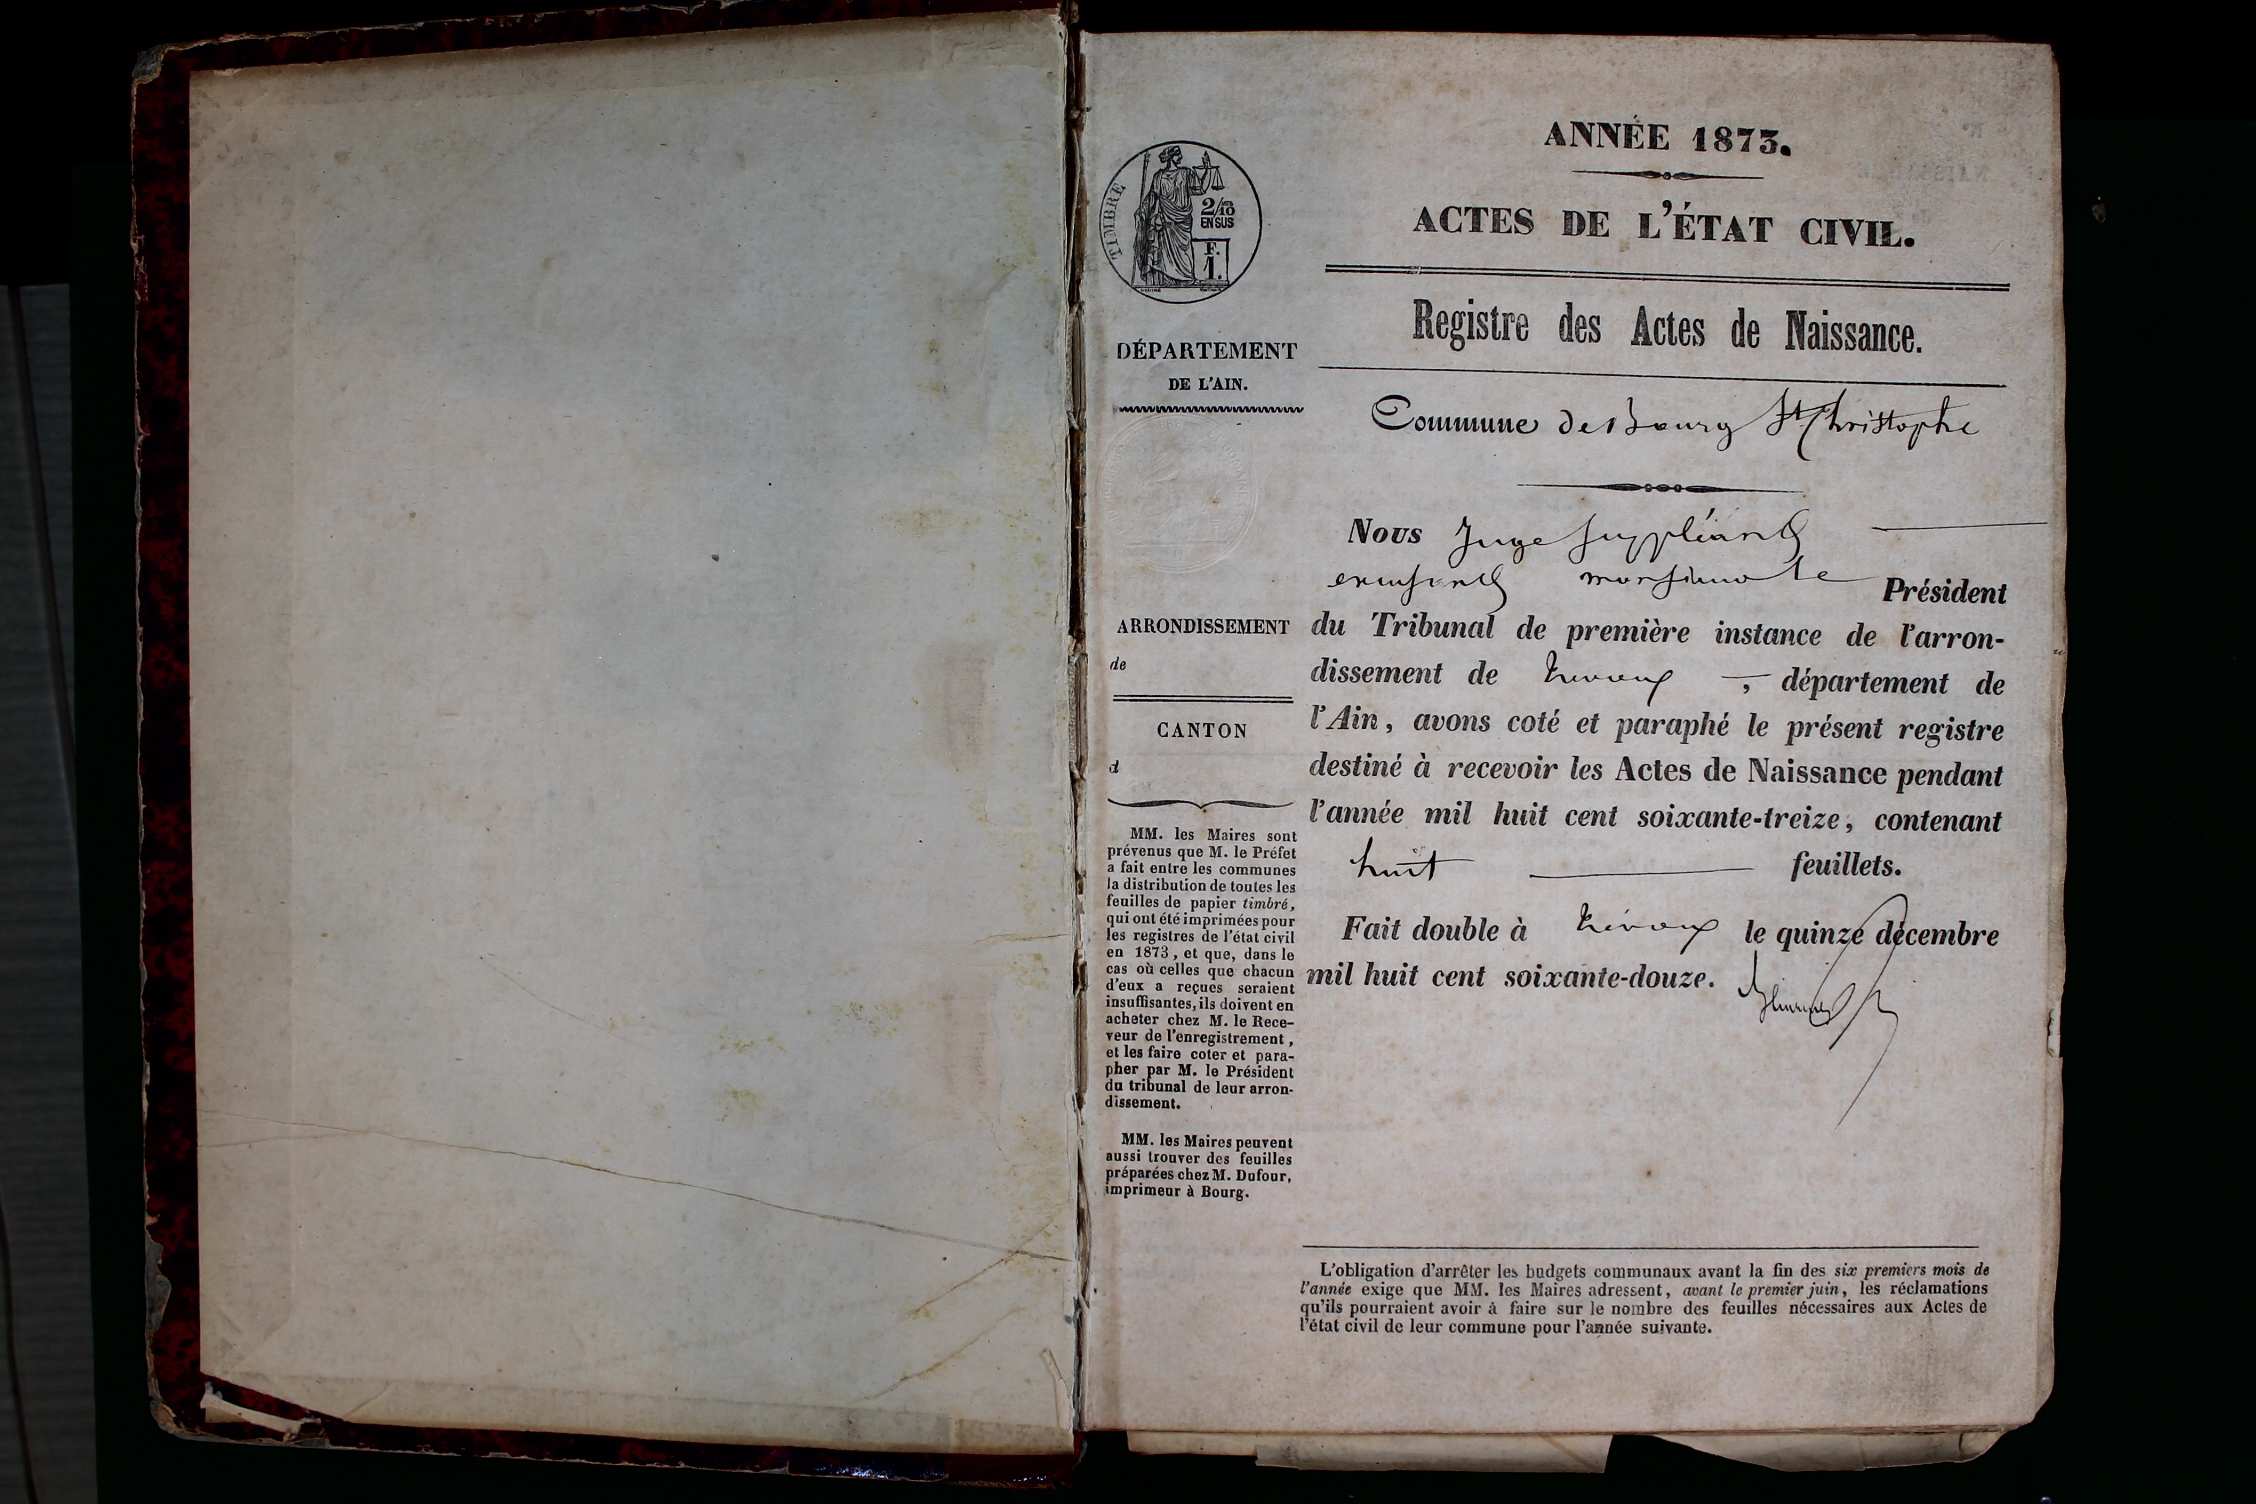 ANNÉE 1873.
ACTES DE L'ÉTAT CIVIL.
Registre des Actes de Naissance.
TIMBRE
2/10
EN SUS
F.
1.
DÉPARTEMENT
DE L'AIN.
ARRONDISSEMENT
de
CANTON
d
MM. les Maires sont
prévenus que M. le Préfet
a fait entre les communes
la distribution de toutes les
feuilles de papier timbré,
qui ont été imprimées pour
les registres de l'état civil
en 1873, et que, dans le
cas où celles que chacun
d'eux a reçues seraient
insuffisantes, ils doivent en
acheter chez M. le Rece-
veur de l'enregistrement,
et les faire coter et para-
pher par M. le Président
du tribunal de leur arron-
dissement.
MM. les Maires peuvent
aussi trouver des feuilles
préparées chez M. Dufour,
imprimeur à Bourg.
Commune de Bourg St Christophe
Nous Juge suppléant
Président
du Tribunal de première instance de l'arron-
dissement de Trévoux, département de
l'Ain, avons coté et paraphé le présent registre
destiné à recevoir les Actes de Naissance pendant
l'année mil huit cent soixante-treize, contenant
huit feuillets.
Fait double à Trévoux le quinze décembre
mil huit cent soixante-douze.
L'obligation d'arrêter les budgets communaux avant la fin des six premiers mois de
l'année exige que MM. les Maires adressent, avant le premier juin, les réclamations
qu'ils pourraient avoir à faire sur le nombre des feuilles nécessaires aux Actes de
l'état civil de leur commune pour l'année suivante.